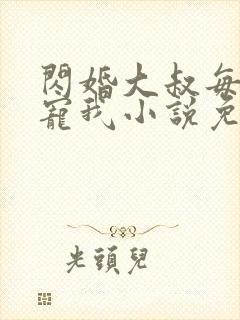 閃婚大叔每
寵我小說免
光頭兒